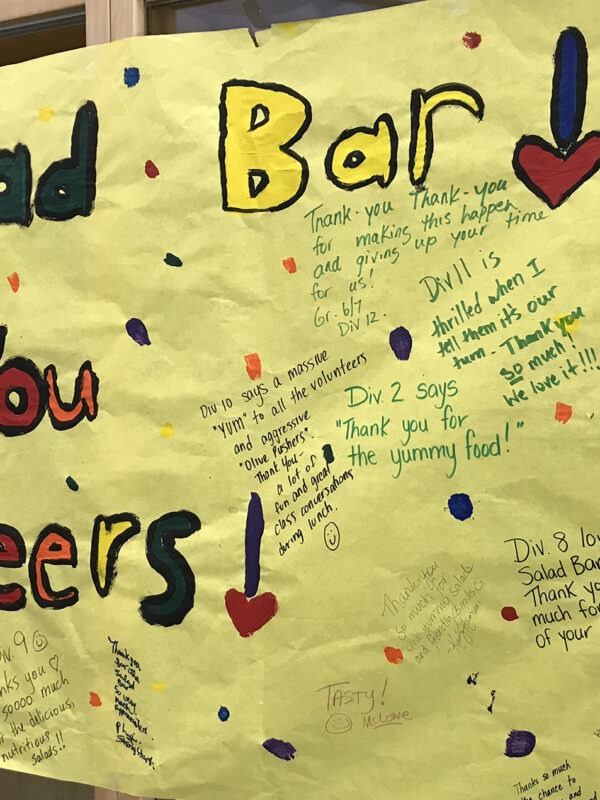 ad Bar!
Thank-you Thank-you
for making this happen
and giving up your time
for us!
Gr. 6/7
Div 12.
Div 11 is
thrilled when I
tell them it's our
turn - Thank you
so much!
We love it!!!
ou
Div 10 says a massive
"YUM" to all the volunteers
and aggressive
"Olive Pushers".
Thank you -
a lot of
fun and great
class conversations
during lunch.
Div. 2 says
"Thank you for
the yummy food!"
eers!
Div. 8 lo
Salad Bar
Thank yo
much for
of your
Thank you
so much for
the yummy salads
and friendly smiles
iv. 9
nks you
so000 much
r the delicious,
nutritious
salads!!
Thank you
for the
Salad Bar
so very
much
appreciated
TASTY!
Ms Love
Thanks so much
the chance to
and